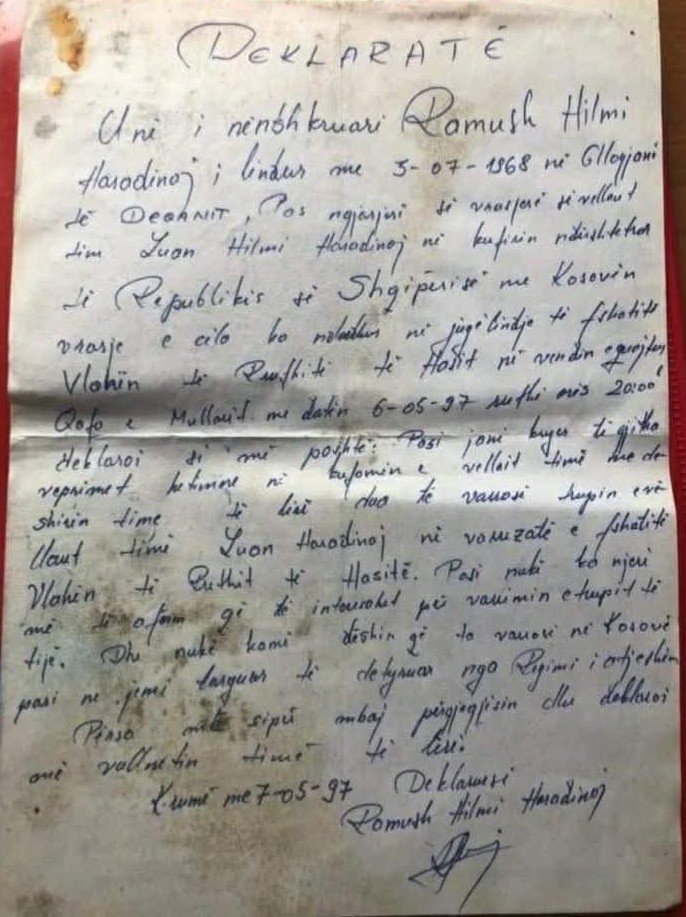 DEKLARATË
Unë i nënshkruari Ramush Hilmi
Haradinaj i lindur me 3-07-1968 në Gllogjani
të DEÇANIT, Pas ngjarjës së vrasjerë së vellaut
tim Luan Hilmi Haradinaj në kufirin ndërshtetror
të Republikës së Shqipërisë me Kosovën
vrasje e cila ka ndodhur në jugëlindje të fshatit
Vlahën të Ruthitë të Hasit në vendin e quajtur
Qafa e Mullarit me datën 6-05-97 rrethi orës 20:00'
deklaroj si më poshtë: Pasi jani bëjer të gjitha
veprimet hetimore në kufomën e vellait timë me dë-
shirën time të lirë dua të varrosi trupin e vë-
llaut timë Luan Haradinaj në varrezatë e fshatitë
Vlahën të Ruthit të Hasitë. Pasi nukë ka njeri
më të afërm që të interesohet për varrimin e trupit të
tijë. Dhe nukë kamë dëshirë që ta varrosi në Kosovë
pasi ne jemi larguar të detyruar nga Regjimi i atjeshëm
Përsa më sipër mbaj përgjegjësin dhe deklaroi
më vullnetin timë të lirë.
Krumë me 7-05-97 Deklaruesi
Ramush Hilmi Haradinaj